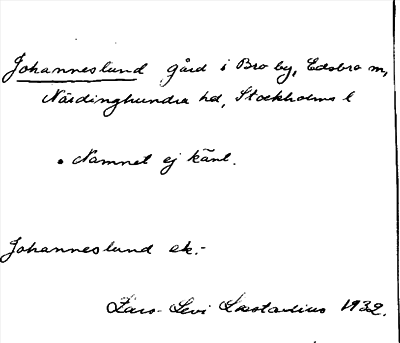 Johanneslund gård i Bro by, Edsbro sn,
Närdinghundra hd, Stockholms l
• Namnet ej känt.
Johanneslund ek.:-
Lars-Levi Læstadius 1932.